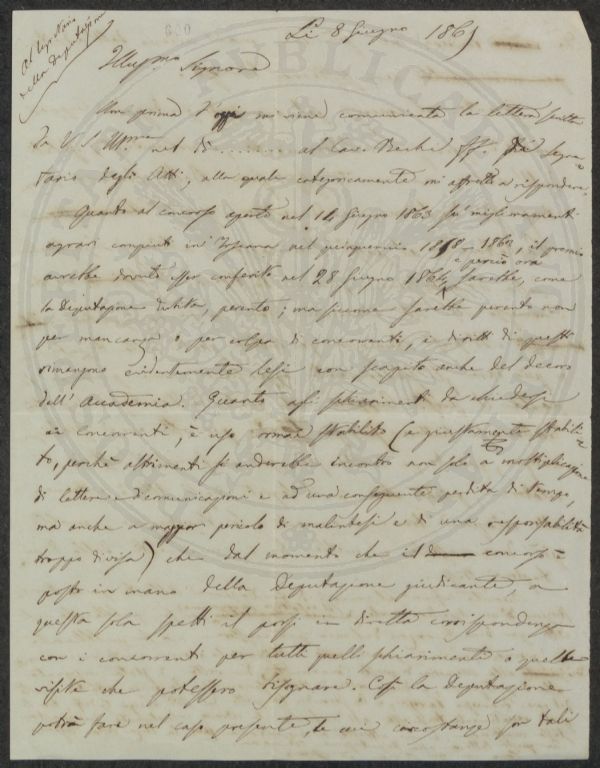 Al Segretario
della Deputazione
Li 8 Giugno 1865
Illust.mo Signore
Une prima d'oggi mi viene comunicata la lettera scritta
da V. S. Ill.ma nel dì ........ al Cav. Bechi ff. di Segre=
tario degli Atti, alla quale categoricamente mi affretto a rispondere.
Quanto al concorso aperto nel 14 Giugno 1863 su' miglioramenti
agrari compiuti in Toscana nel quinquennio 1858-1862, il premio
avrebbe dovuto esser conferito nel 28 Giugno 1864, e perciò ora sarebbe, come
la Deputazione dubita, perento; ma siccome sarebbe perento non
per mancanza o per colpa di concorrenti, i diritti di questi
rimangono evidentemente lesi con scapito anche del decoro
dell'Accademia. Quanto agli schiarimenti da chiedersi
ai concorrenti, è uso ormai stabilito (e giustamente stabili=
to, perchè altrimenti si anderebbe incontro non solo a moltiplicazione
di lettere e di comunicazioni e ad una conseguente perdita di tempo,
ma anche a maggior pericolo di malintesi e di una responsabilità
troppo divisa) che dal momento che il concorso è
posto in mano della Deputazione giudicante, a
questa sola spetti il porsi in diretta corrispondenza
con i concorrenti per tutti quelli schiarimenti o quelle
visite che potessero bisognare. Così la Deputazione
potrà fare nel caso presente, le cui circostanze son tali